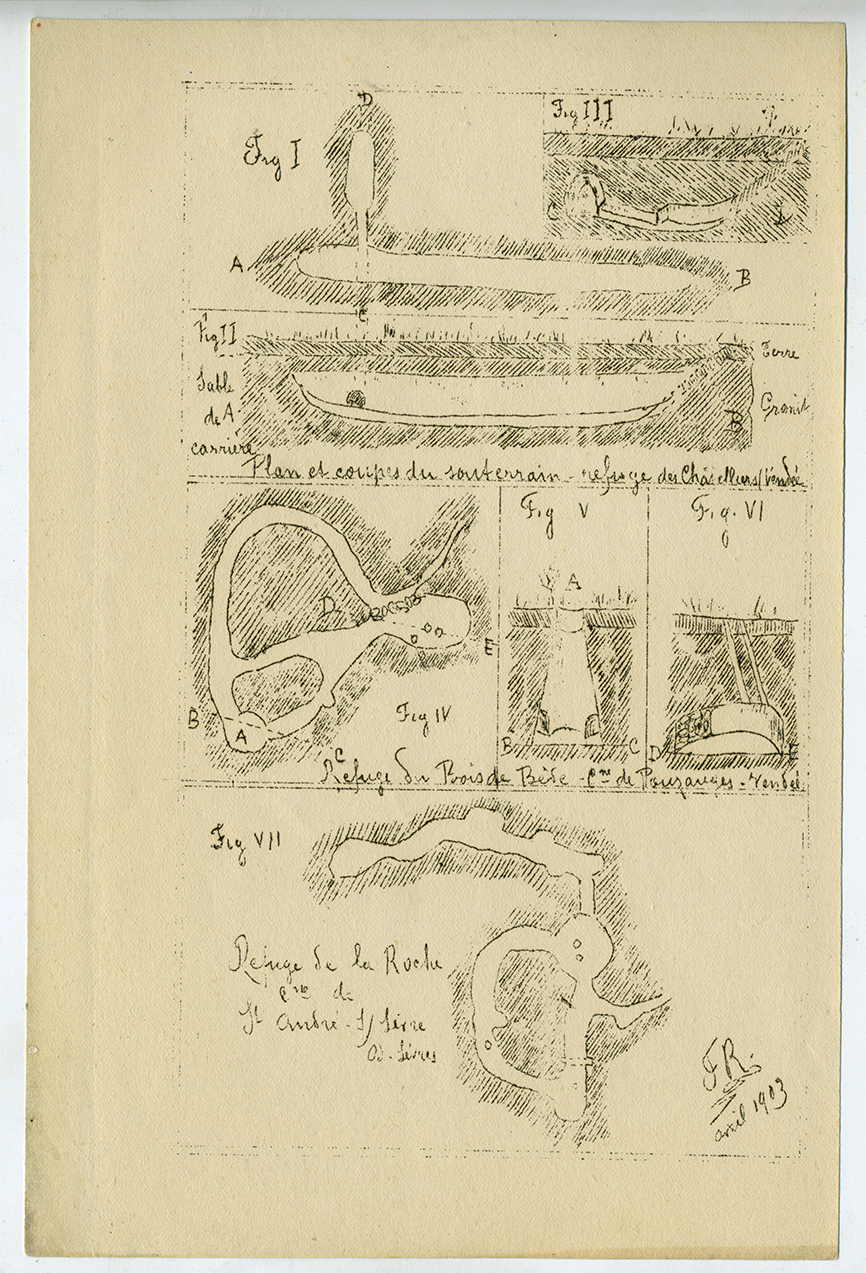 Fig I
D
A
B
C
Fig III
C
Fig II
Terre
Sable
de A
carrière
Granit
B
Plan et coupes du souterrain - refuge des Châtelliers / Vendée
Fig IV
D
E
B
A
C
Fig V
A
B
C
Fig. VI
D
E
Refuge du Bois de Bède - Cne de Pouzauges - Vendée
Fig VII
Refuge de la Roche
Cne de
St André - S/ Sèvre
Dx - Sèvres
FR.
avril 1903